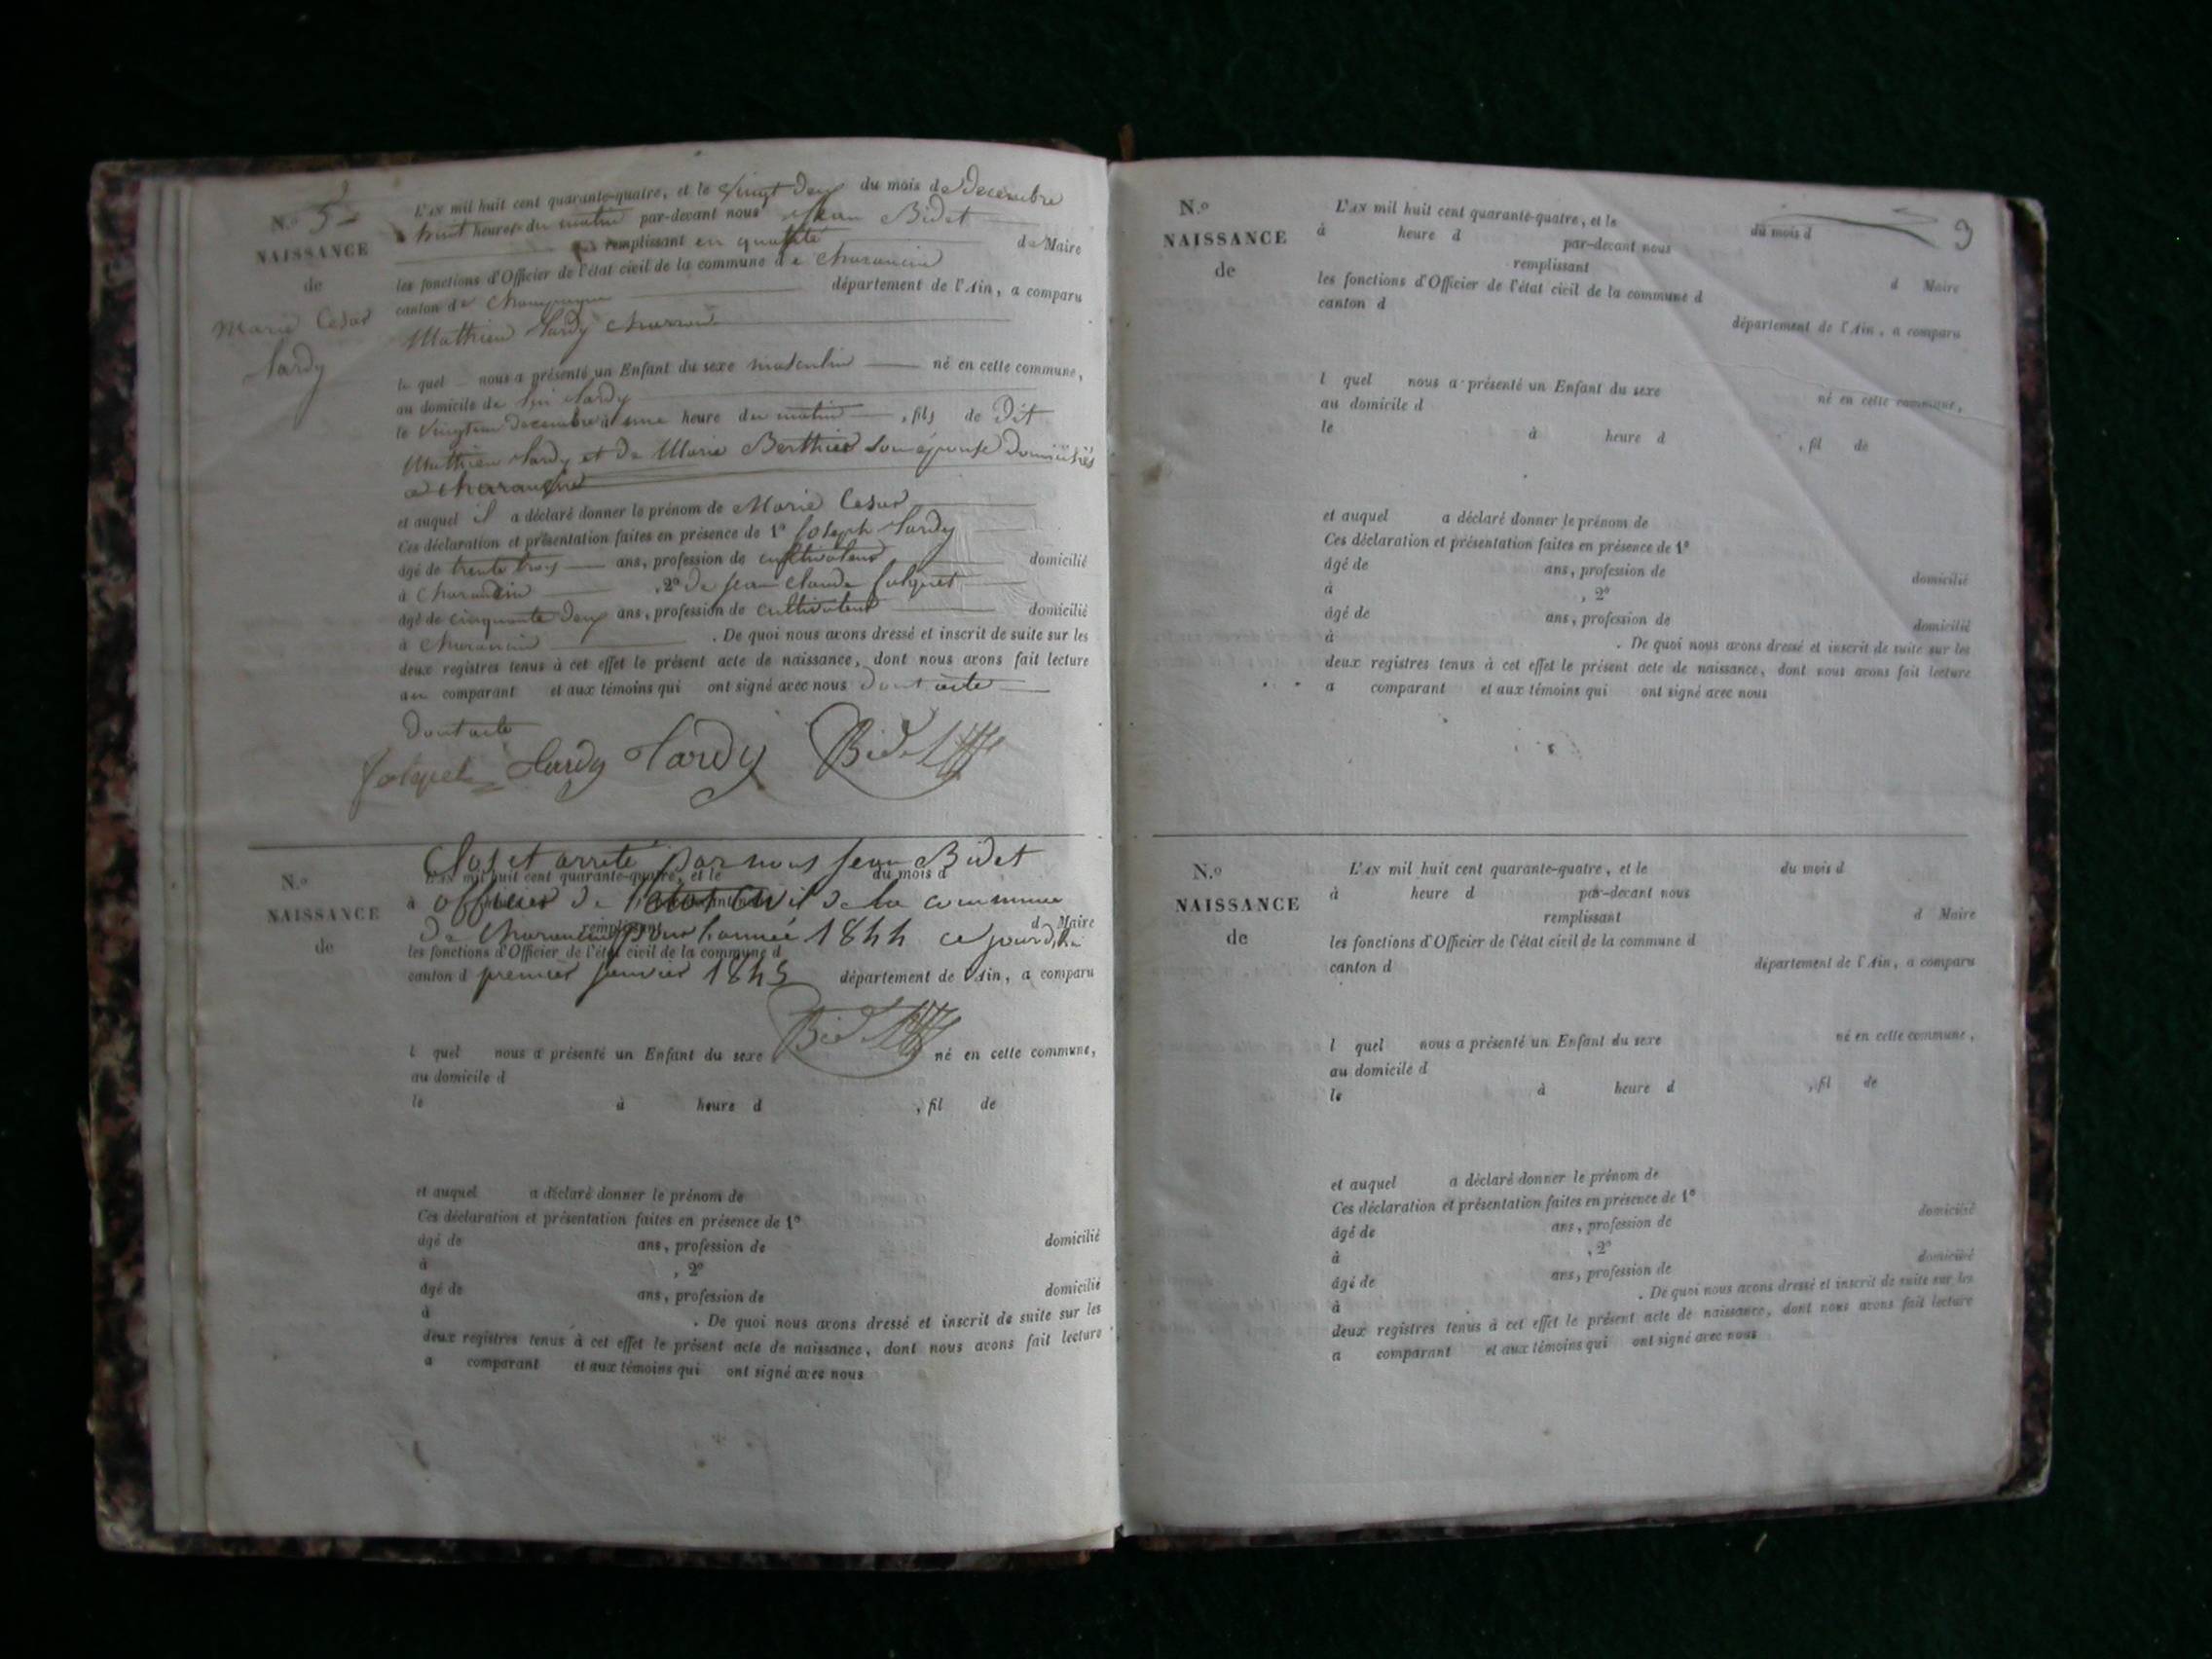 N.o 5
NAISSANCE
de
Marie Cesar
Tardy
L'AN mil huit cent quarante-quatre, et le Vingt Deux du mois de Decembre
à huit heures du matin par-devant nous Jean Bidet
remplissant en qualité de Maire
les fonctions d'Officier de l'état civil de la commune de Charancin
canton de Champagne département de l'Ain, a comparu
Mathieu Tardy
le quel nous a présenté un Enfant du sexe masculin né en cette commune,
au domicile de Tardy
le Decembre à une heure du matin, fils de Dit
Mathieu Tardy et de Marie Berthier son épouse Domiciliés
a Charancin
et auquel il a déclaré donner le prénom de Marie Cesar
Ces déclaration et présentation faites en présence de 1o Joseph Tardy
âgé de trente trois ans, profession de cultivateur domicilié
à Charancin , 2o De Jean Claude
âgé de cinquante Deux ans, profession de cultivateur domicilié
à Charancin . De quoi nous avons dressé et inscrit de suite sur les
deux registres tenus à cet effet le présent acte de naissance, dont nous avons fait lecture
au comparant et aux témoins qui ont signé avec nous Dont acte
Dont acte
Tardy Tardy Bidet
Clos et arreté par nous Jean Bidet
N.o L'AN mil huit cent quarante-quatre, et le du mois d
NAISSANCE à officier de l'état Civil de la commune
de De Charancin pour l'année 1844 ce jourd'hui
remplissant d Maire
les fonctions d'Officier de l'état civil de la commune d
canton d premier janvier 1845 département de l'Ain, a comparu
Bidet
l quel nous a présenté un Enfant du sexe né en cette commune,
au domicile d
le à heure d , fil de
et auquel a déclaré donner le prénom de
Ces déclaration et présentation faites en présence de 1o
âgé de ans, profession de domicilié
à , 2o
âgé de ans, profession de domicilié
à . De quoi nous avons dressé et inscrit de suite sur les
deux registres tenus à cet effet le présent acte de naissance, dont nous avons fait lecture
a comparant et aux témoins qui ont signé avec nous
9
N.o L'AN mil huit cent quarante-quatre, et le du mois d
NAISSANCE à heure d par-devant nous
de remplissant d Maire
les fonctions d'Officier de l'état civil de la commune d
canton d département de l'Ain, a comparu
l quel nous a présenté un Enfant du sexe né en cette commune,
au domicile d
le à heure d , fil de
et auquel a déclaré donner le prénom de
Ces déclaration et présentation faites en présence de 1o
âgé de ans, profession de domicilié
à , 2o
âgé de ans, profession de domicilié
à . De quoi nous avons dressé et inscrit de suite sur les
deux registres tenus à cet effet le présent acte de naissance, dont nous avons fait lecture
a comparant et aux témoins qui ont signé avec nous
N.o L'AN mil huit cent quarante-quatre, et le du mois d
NAISSANCE à heure d par-devant nous
de remplissant d Maire
les fonctions d'Officier de l'état civil de la commune d
canton d département de l'Ain, a comparu
l quel nous a présenté un Enfant du sexe né en cette commune,
au domicile d
le à heure d , fil de
et auquel a déclaré donner le prénom de
Ces déclaration et présentation faites en présence de 1o
âgé de ans, profession de domicilié
à , 2o
âgé de ans, profession de domicilié
à . De quoi nous avons dressé et inscrit de suite sur les
deux registres tenus à cet effet le présent acte de naissance, dont nous avons fait lecture
a comparant et aux témoins qui ont signé avec nous